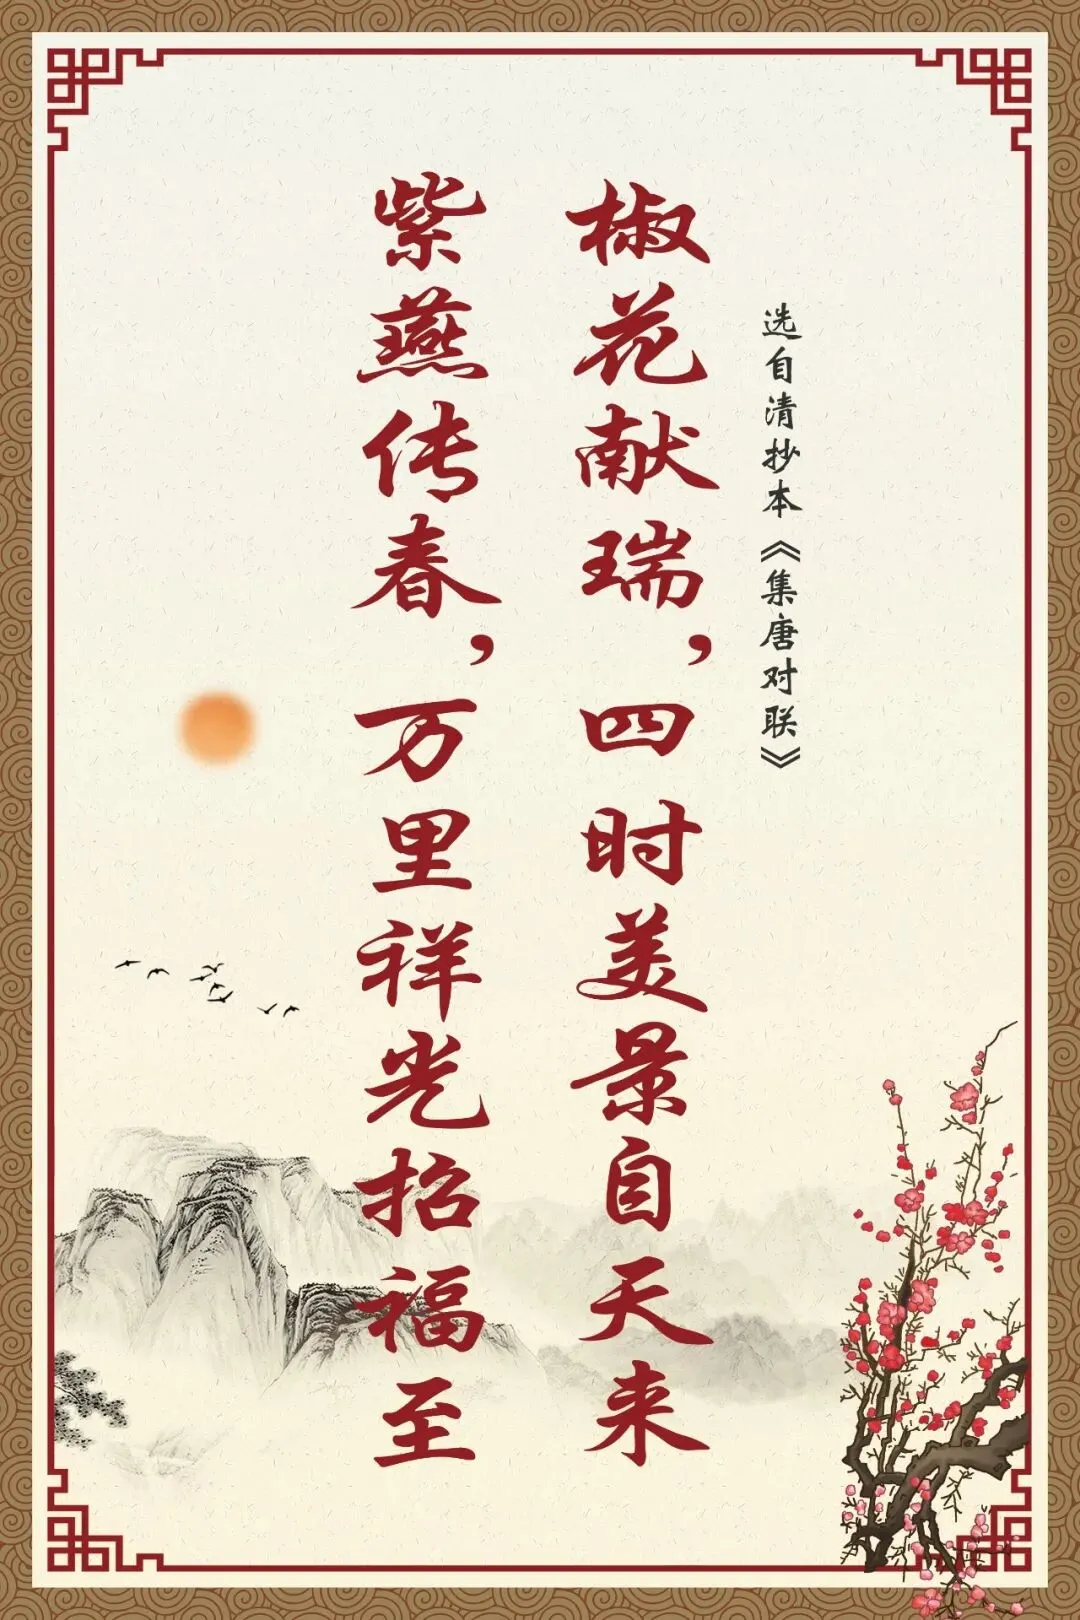 选自清抄本《集唐对联》
椒花献瑞，四时美景自天来
紫燕传春，万里祥光招福至